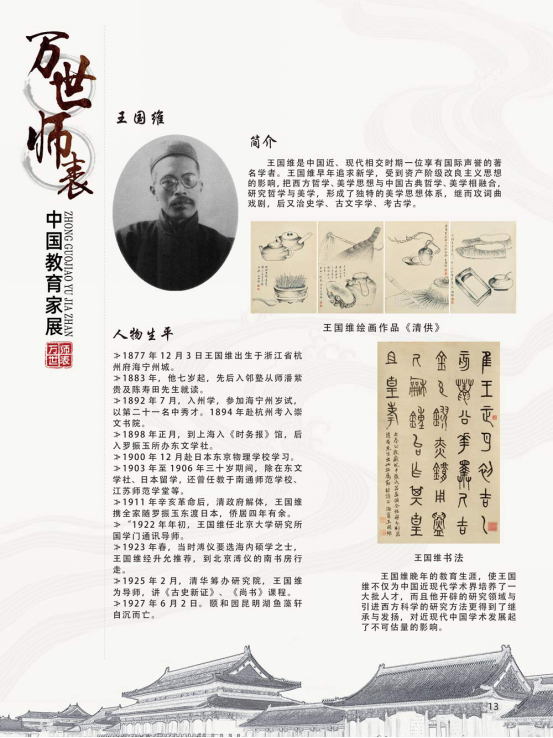 万世师表
中国教育家展
ZHONG GUOJIAO YU JIA ZHAN
万世师表
王国维
简介
王国维是中国近、现代相交时期一位享有国际声誉的著
名学者。王国维早年追求新学，受到资产阶级改良主义思想
的影响，把西方哲学、美学思想与中国古典哲学、美学相融合，
研究哲学与美学，形成了独特的美学思想体系，继而攻词曲
戏剧，后又治史学、古文字学、考古学。
王国维绘画作品《清供》
人物生平
≥1877年12月3日王国维出生于浙江省杭
州府海宁州城。
≥1883年，他七岁起，先后入邻塾从师潘紫
贵及陈寿田先生就读。
≥1892年7月，入州学，参加海宁州岁试，
以第二十一名中秀才。1894年赴杭州考入崇
文书院。
≥1898年正月，到上海入《时务报》馆，后
入罗振玉所办东文学社。
≥1900年12月赴日本东京物理学校学习。
≥1903年至1906年三十岁期间，除在东文
学社、日本留学，还曾任教于南通师范学校、
江苏师范学堂等。
≥1911年辛亥革命后，清政府解体，王国维
携全家随罗振玉东渡日本，侨居四年有余。
≥“1922年年初，王国维任北京大学研究所
国学门通讯导师。
≥1923年春，当时溥仪要选海内硕学之士，
王国维经升允推荐，到北京溥仪的南书房行
走。
≥1925年2月，清华筹办研究院，王国维
为导师，讲《古史新证》、《尚书》课程。
≥1927年6月2日。颐和园昆明湖鱼藻轩
自沉而亡。
王国维书法
王国维晚年的教育生涯，使王国
维不仅为中国近现代学术界培养了一
大批人才，而且他开辟的研究领域与
引进西方科学的研究方法更得到了继
承与发扬，对近现代中国学术发展起
了不可估量的影响。
13